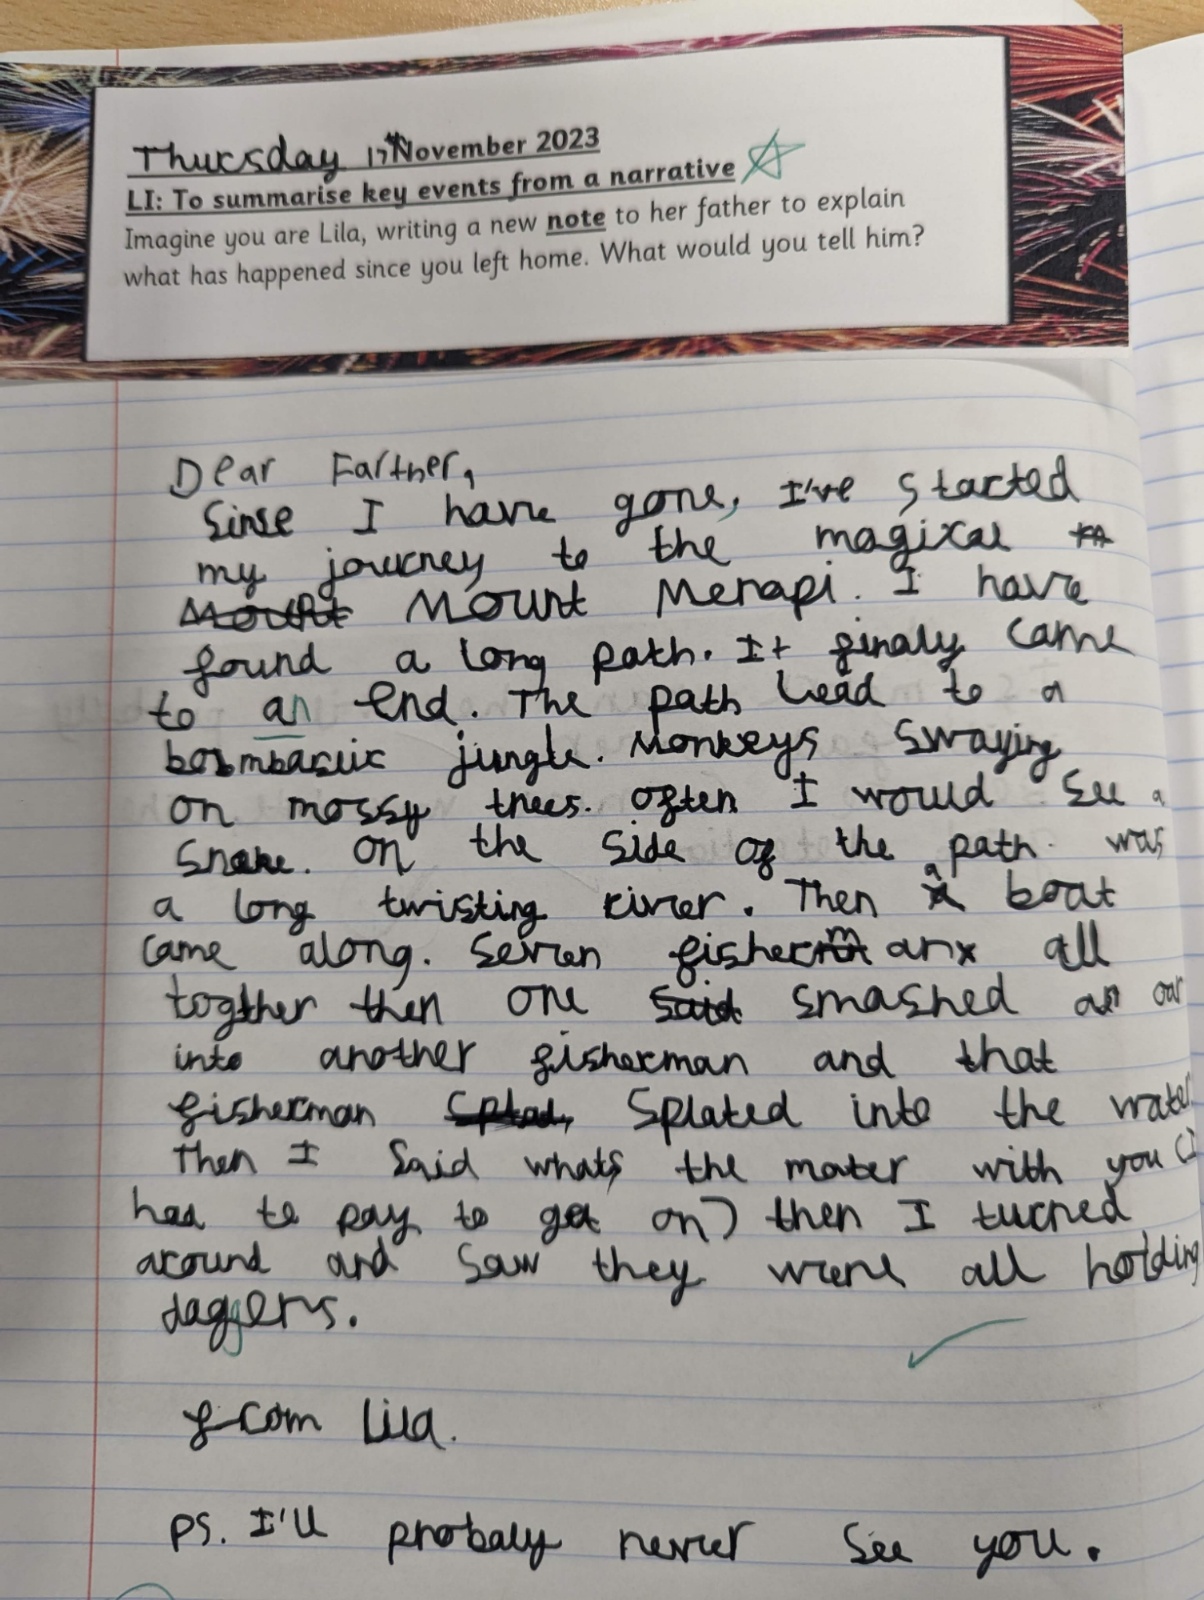 Thursday 17th November 2023
LI: To summarise key events from a narrative
Imagine you are Lila, writing a new note to her father to explain
what has happened since you left home. What would you tell him?
Dear Farther,
Sinse I have gone, I've started
my journey to the magical
Mount Mount Merapi. I have
found a long path. It finaly came
to an end. The path lead to a
bosmbastic jungle. Monkeys swaying
on mossy trees. often I would see a
snake. On the side of the path was
a long twisting river. Then a boat
came along. Seven fisherman all
togther then one said smashed an oar
into another fisherman and that
fisherman Splated into the water.
Then I Said whats the mater with you (I
had to pay to get on) then I turned
around and saw they were all holding
daggers.
from Lila.
PS. I'll probaly never see you.